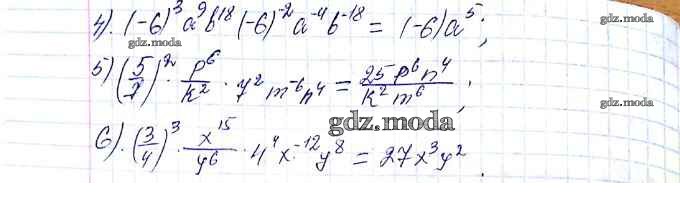 4). (-6)³a⁹b¹⁸(-6)⁻²a⁻⁴b⁻¹⁸ = (-6)a⁵;
gdz.moda
5)(5/7)² · p⁶/k² · 7²m⁻⁶n⁴ = 25p⁶n⁴/k²m⁶;
gdz.moda
6).(3/4)³ · x¹⁵/y⁶ · 4⁴x⁻¹²y⁸ = 27x³y².
gdz.moda